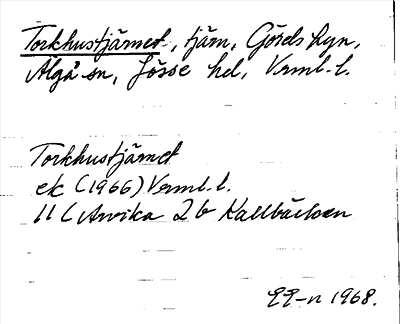 Torkhustjärnet, tjärn, Görsbyn,
Älgå sn, Jösse hd, Värml. l.
Torkhustjärnet
ek (1966) Värml. l.
11 C Arvika 2 b Kallbäcken
1968.